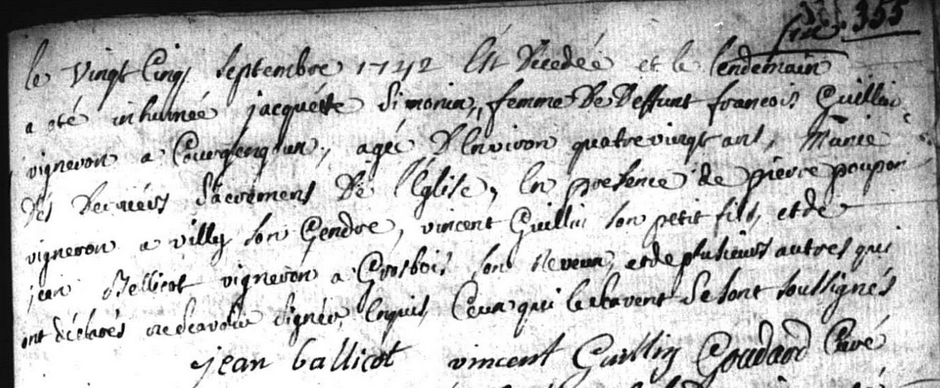 six 355
le vingt cinq septembre 1742 Est decedée et le lendemain
a été inhumée jacquette Simonin, femme De Deffunt francois Guillin
vigneron a agée D'Environ quatre vingt ans, Munie
Des Derniers Sacremens De l'Eglise, En presence de pierre poupon
vigneron a villy son Gendre, vincent Guillin son petit fils, et de
jean Bellicot vigneron a Grosbois son neveu, et de plusieurs autres qui
ont déclarés ne scavoir signér Enquis, Ceux qui le scavent se sont soussignés
jean ballicot vincent Guillin Goudard Curé